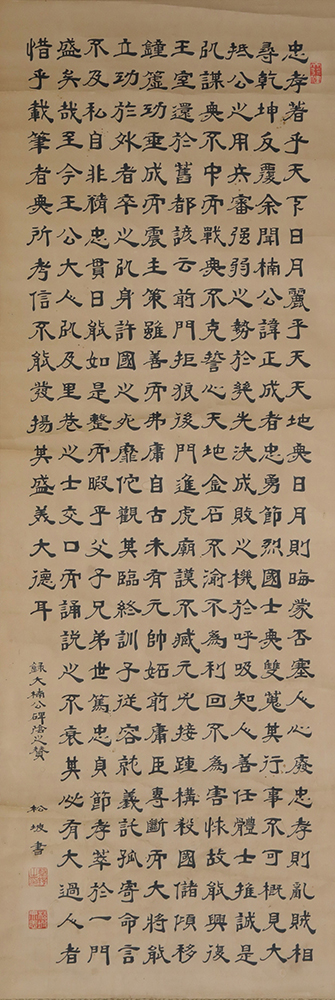 忠孝著乎天下日月麗乎天天地無日月則晦蒙否塞人心廢忠孝則亂賊相
尋乾坤反覆余聞楠公諱正成者忠勇節烈國士無雙蒐其行事不可概見大
抵公之用兵審强弱之勢於幾先決成敗之機於呼吸知人善任體士推誠是
㠯謀無不中而戰無不克誓心天地金石不渝不為利回不為害怵故能興復
王室還於舊都諺云前門拒狼後門進虎廟謨不臧元兇接踵構殺國儲傾移
鐘簴功垂成而震主策雖善而弗庸自古未有元帥妬前庸臣專斷而大將能
立功於外者卒之㠯身許國之死靡佗觀其臨終訓子從容就義託孤寄命言
不及私自非精忠貫日能如是整而暇乎父子兄弟世篤忠貞節孝萃於一門
盛矣哉至今王公大人㠯及里巷之士交口而誦說之不衰其必有大過人者
惜乎載筆者無所考信不能發揚其盛美大德耳
錄大楠公碑陰之贊
松坡書